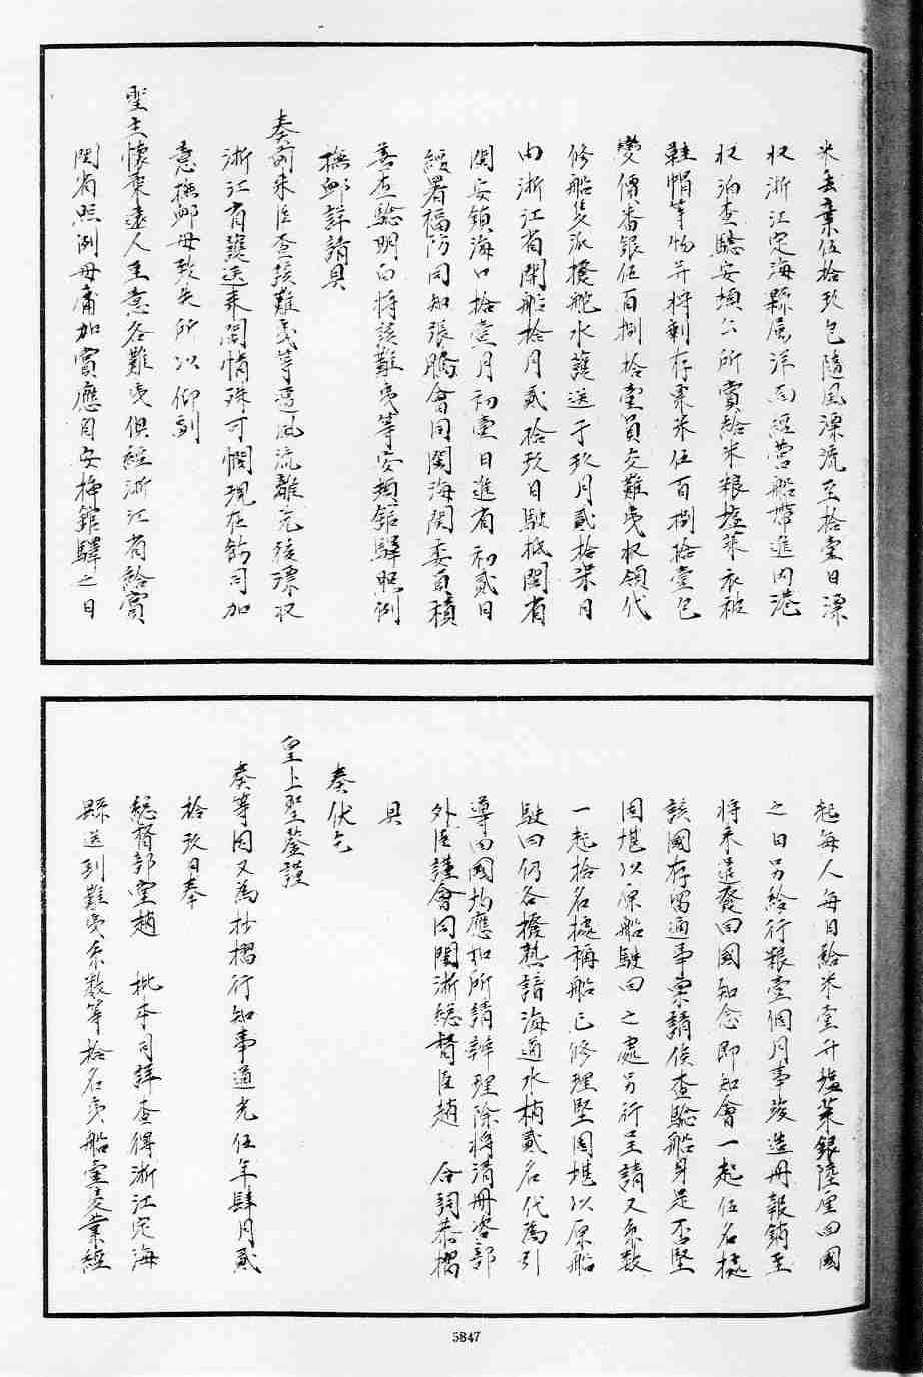 米丟棄伍拾玖包隨風漂流至拾壹日漂
收浙江定海縣屬洋面經營船帶進內港
收泊查驗安頓公所賞給米粮塩菜衣被
鞋帽等物并將剩存粟米伍百捌拾壹包
變價番銀伍百捌拾壹員交難夷收領代
修船隻派撥舵水護送于玖月貳拾柒日
由浙江省開船拾月貳拾玖日駛抵閩省
閩安鎮海口拾壹月初壹日進省初貳日
經署福防同知張騰會同閩海関委員積
善查驗明白將該難夷等安頓館驛照例
撫卹詳請具
奏前來臣查該難夷等遭風流離危後漂收
浙江省護送來閩情殊可憫現在飭司加
意撫卹毋致失所以仰副
聖主懷柔遠人至意各難夷俱經浙江省給賞
閩省照例毋庸加賞應自安插館驛之日
起每人每日給米壹升塩菜銀陸厘回國
之日另給行粮壹個月事竣造冊報銷至
將來遣發回國知念即知會一起伍名據
該國存留通事稟請俟查驗船身是否堅
固堪以原船駛回之處另行呈請又系數
一起拾名據稱船已修理堅固堪以原船
駛回仍各撥熟諳海道水梢貳名代為引
導回國均應如所請辦理除將清冊咨部
外臣謹會同閩浙總督臣趙 合詞恭摺
具
奏伏乞
皇上聖鑒謹
奏等因又為抄摺行知事道光伍年肆月貳
拾玖日奉
總督部堂趙 批本司詳查得浙江定海
縣送到難夷系数等拾名夷船壹隻業經
5847